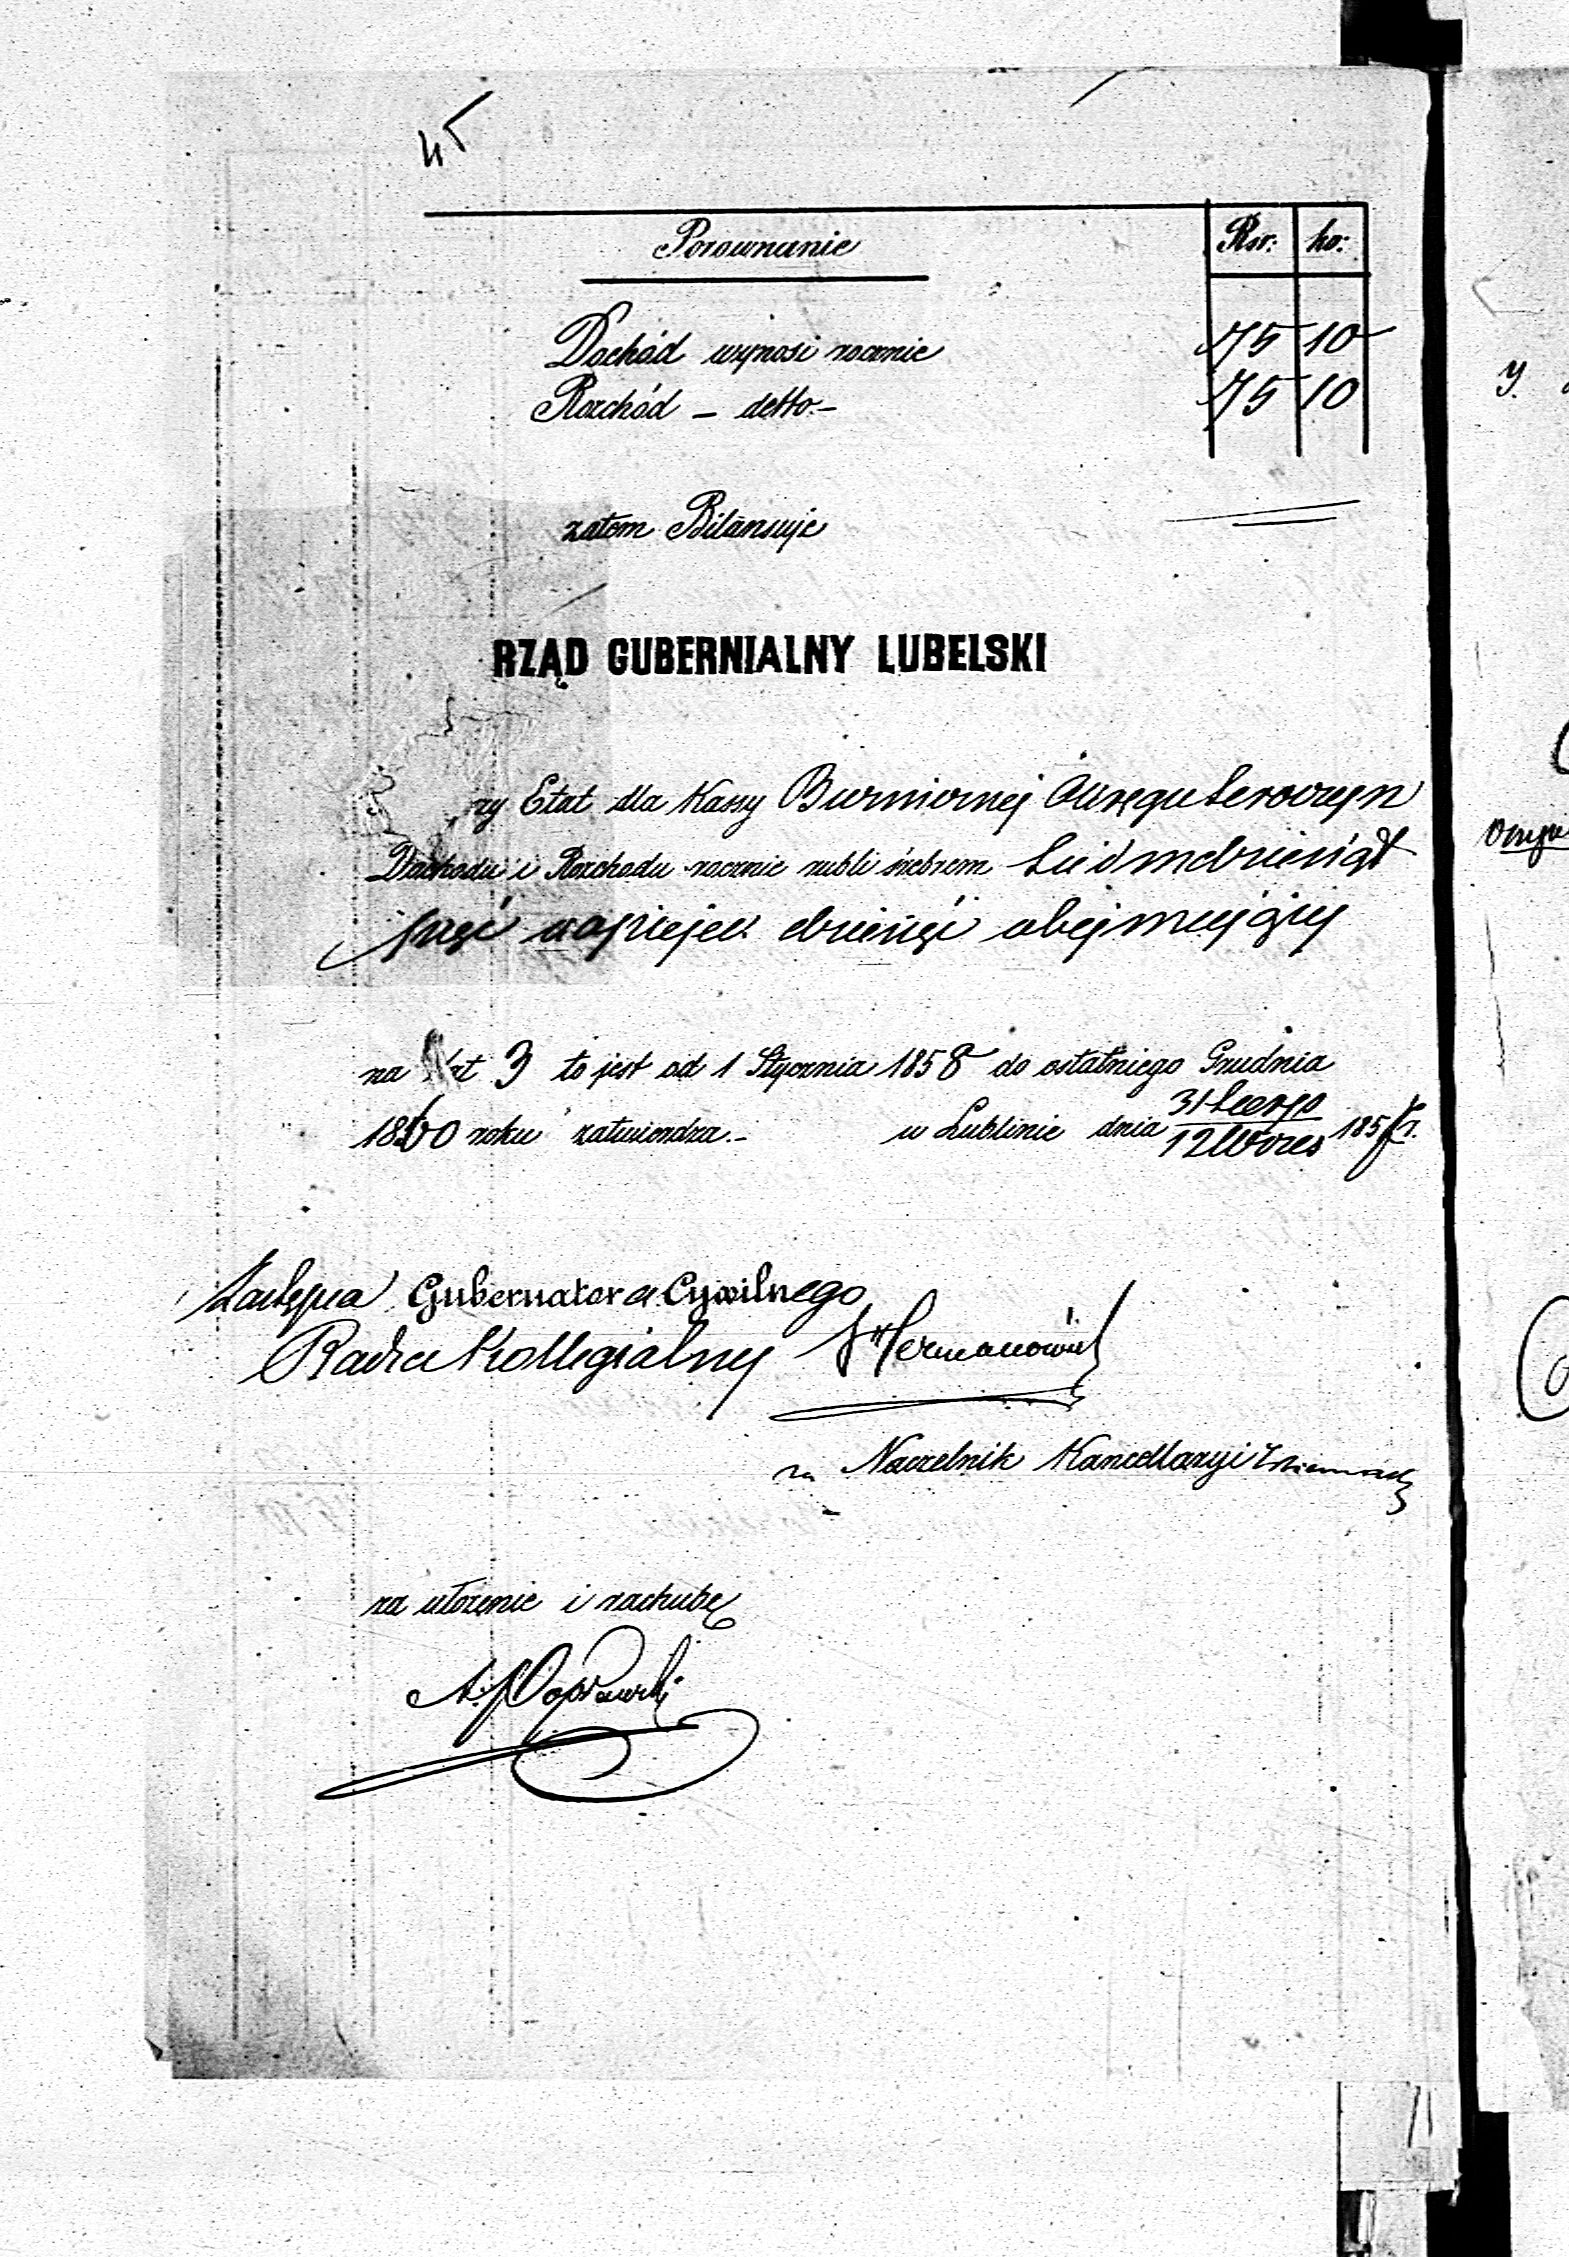 45
Porownanie Rsr: ko:
Dochód wynosi rocznie 75 10
Rozchód – detto.– 75 10
zatem Bilansuje
RZĄD GUBERNIALNY LUBELSKI
zy Etat dla Kassy Okręgu
Dochodu i Rozchodu rocznie rubli srebrem siedmdziesiąt
pięć kopiejek dziesięć obejmujący
na lat 3 to jest od 1 Stycznia 1858 do ostatniego Grudnia
1860 roku zatwierdza.–
w Lublinie dnia 31 / 12 185 r.
Zastępca Gubernatora Cywilnego
Radca Kollegialny Hermanowicz
za Naczelnik Kancellaryi
za ułożenie i rachubę
A. Poprawski